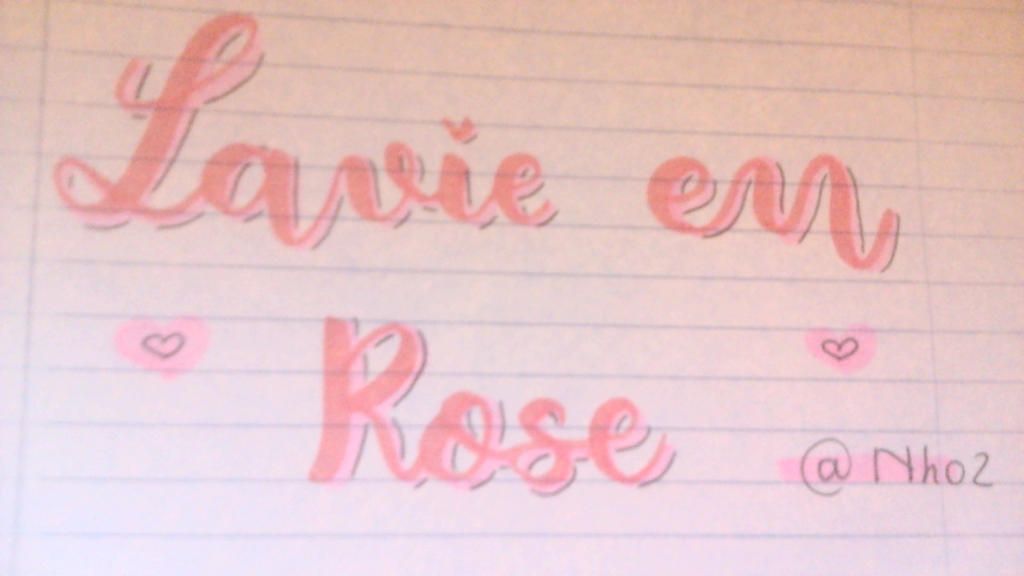 Lavie en
Rose
@Nho2